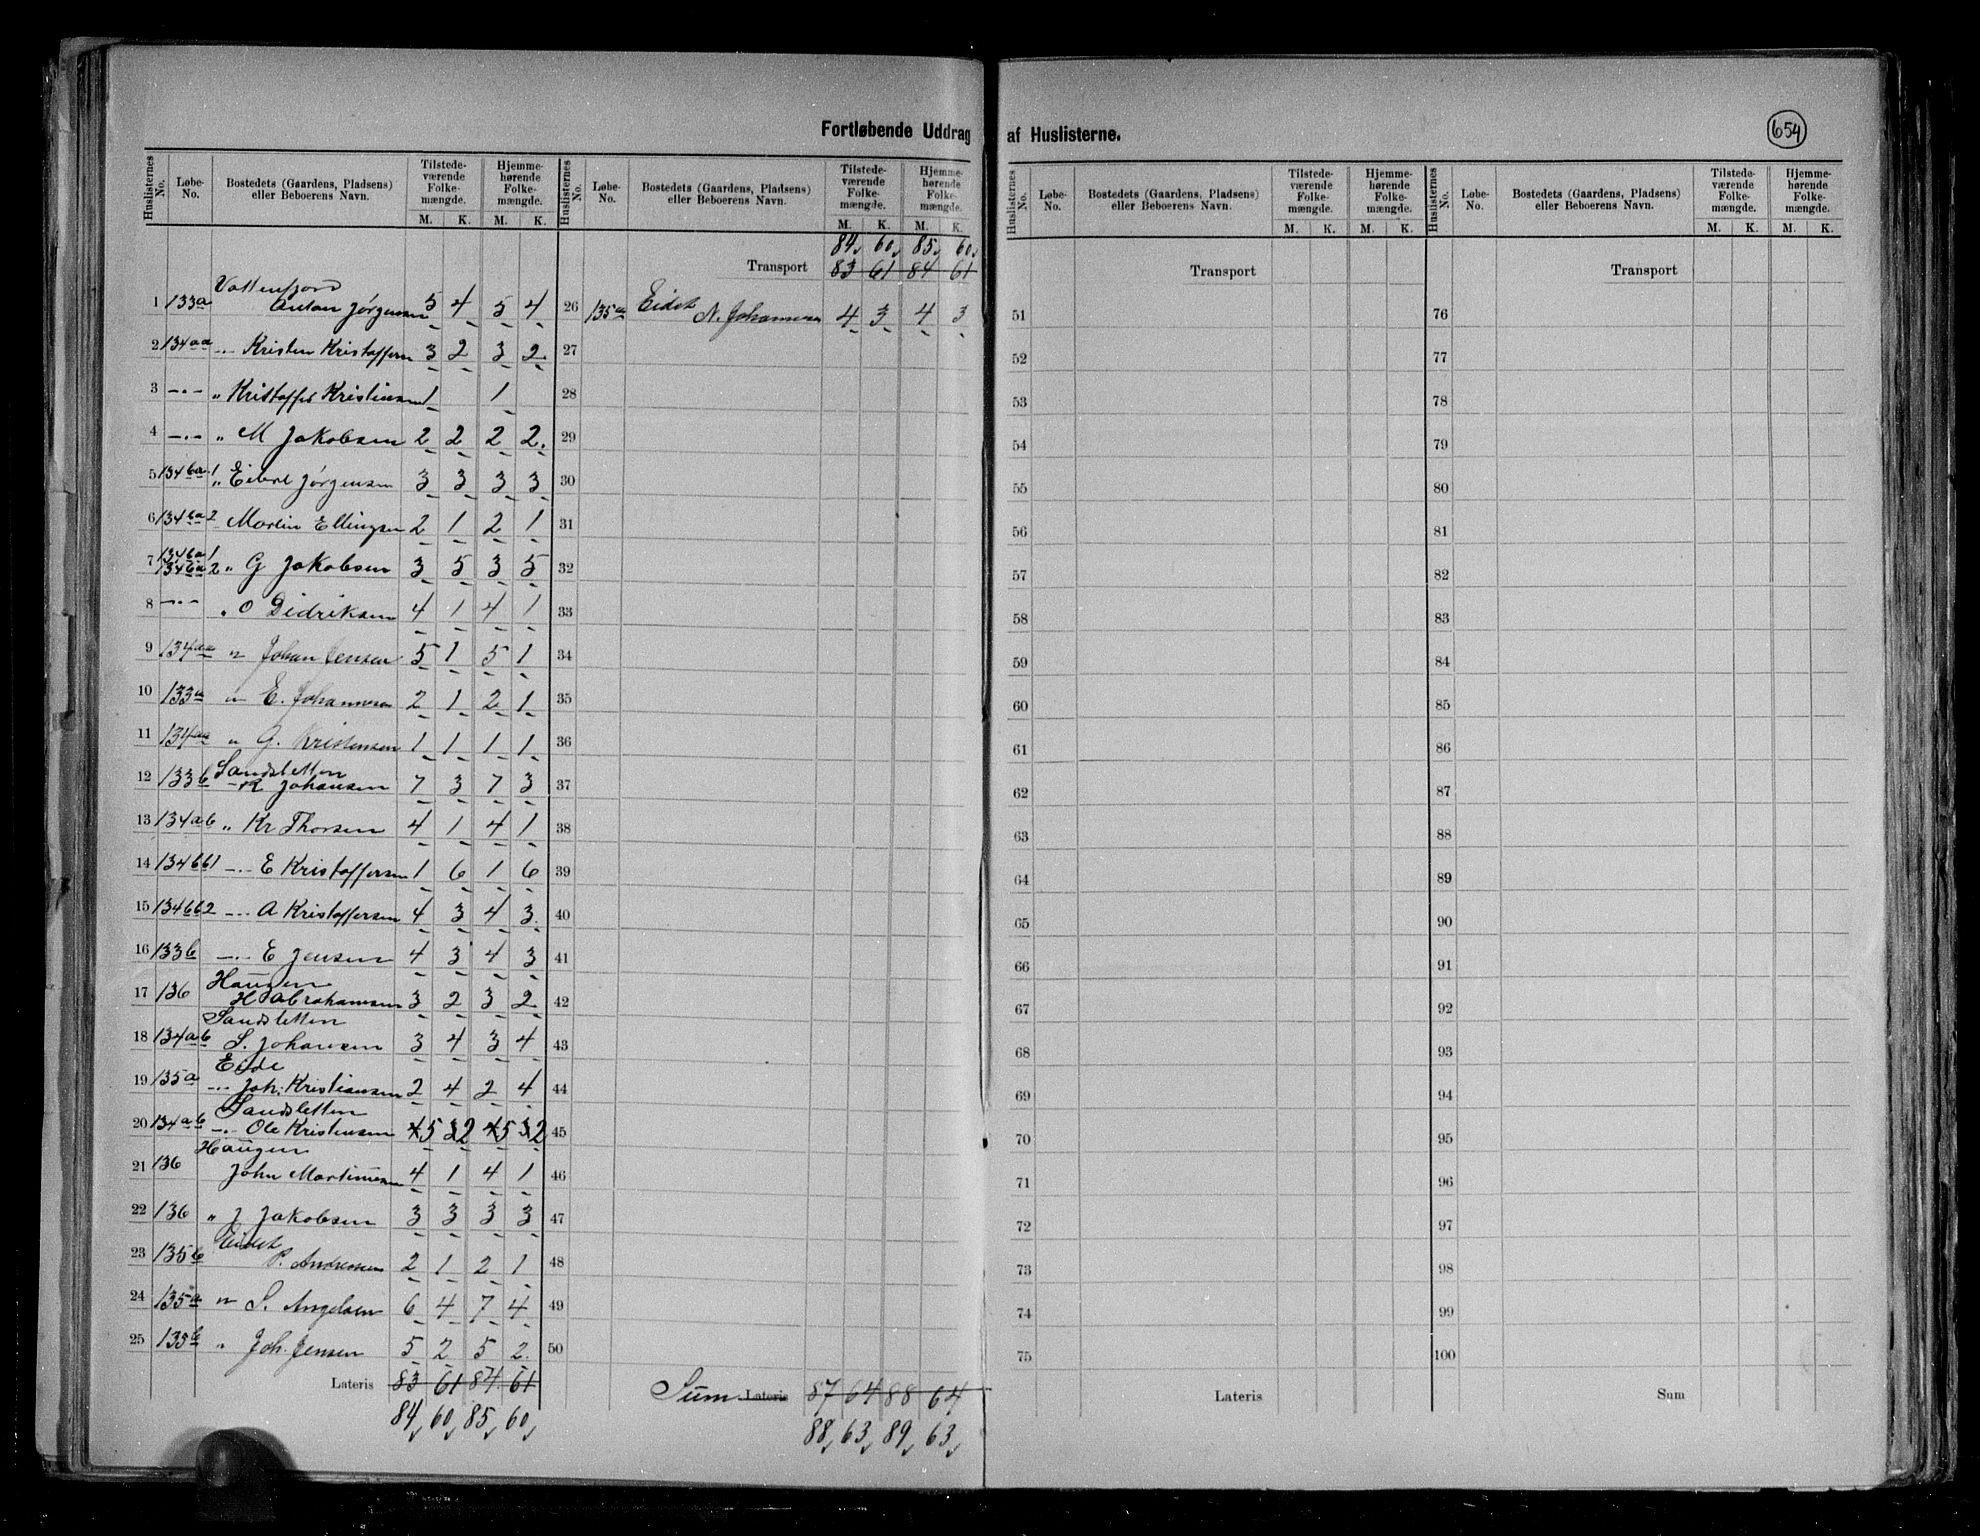 Fortløbende Uddrag af Huslisterne.
654
Huslisternes No. Løbe-No. Bostedets (Gaardens, Pladsens) eller Beboerens Navn. Tilstedeværende Folkemængde. M. K. Hjemmehørende Folkemængde. M. K.
Vattenfjord
1 133a Anton Jørgensen 5 4 5 4
2 134aa -"- Kristen Kristoffersen 3 2 3 2
3 -"- " Kristoffer Kristiansen 1 1
4 -"- " M Jakobsen 2 2 2 2
5 134ba1 " Jørgensen 3 3 3 3
6 134ba2 Martin Ellingsen 2 1 2 1
7 134ba1 134ba2 " G Jakobsen 3 5 3 5
8 -"- " O Didriksen 4 1 4 1
9 134aa " Johan Jensen 5 1 5 1
10 133a " E. Johannesen 2 1 2 1
11 134aa " G. Kristensen 1 1 1 1
Sandsletten
12 133b -K Johansen 7 3 7 3
13 134ab " Kr Thorsen 4 1 4 1
14 134bb1 -"- E Kristoffersen 1 6 1 6
15 134bb2 -"- A Kristoffersen 4 3 4 3
16 133b -"- E Jensen 4 3 4 3
Haugen
17 136 H Abrahamsen 3 2 3 2
Sandsletten
18 134ab S. Johansen 3 4 3 4
Eide
19 135a -"- Joh. Kristiansen 2 4 2 4
Sandsletten
20 134ab -"- Ole Kristensen 4 5 3 2 4 5 3 2
Haugen
21 136 John Martinussen 4 1 4 1
22 136 " J Jakobsen 3 3 3 3
Eidet
23 135b P. Andressen 2 1 2 1
24 135a " S. Angelsen 6 4 7 4
25 135b " Joh. Jensen 5 2 5 2
Lateris 83 61 84 61
84 60 85 60
Huslisternes No. Løbe-No. Bostedets (Gaardens, Pladsens) eller Beboerens Navn. Tilstedeværende Folkemængde. M. K. Hjemmehørende Folkemængde. M. K.
84 60 85 60
Transport 83 61 84 61
26 135a Eidet N. Johannesen 4 3 4 3
27
28
29
30
31
32
33
34
35
36
37
38
39
40
41
42
43
44
45
46
47
48
49
50
Sum Lateris 87 64 88 64
88 63 89 63
Huslisternes No. Løbe-No. Bostedets (Gaardens, Pladsens) eller Beboerens Navn. Tilstedeværende Folkemængde. M. K. Hjemmehørende Folkemængde. M. K.
Transport
51
52
53
54
55
56
57
58
59
60
61
62
63
64
65
66
67
68
69
70
71
72
73
74
75
Lateris
Huslisternes No. Løbe-No. Bostedets (Gaardens, Pladsens) eller Beboerens Navn. Tilstedeværende Folkemængde. M. K. Hjemmehørende Folkemængde. M. K.
Transport
76
77
78
79
80
81
82
83
84
85
86
87
88
89
90
91
92
93
94
95
96
97
98
99
100
Sum